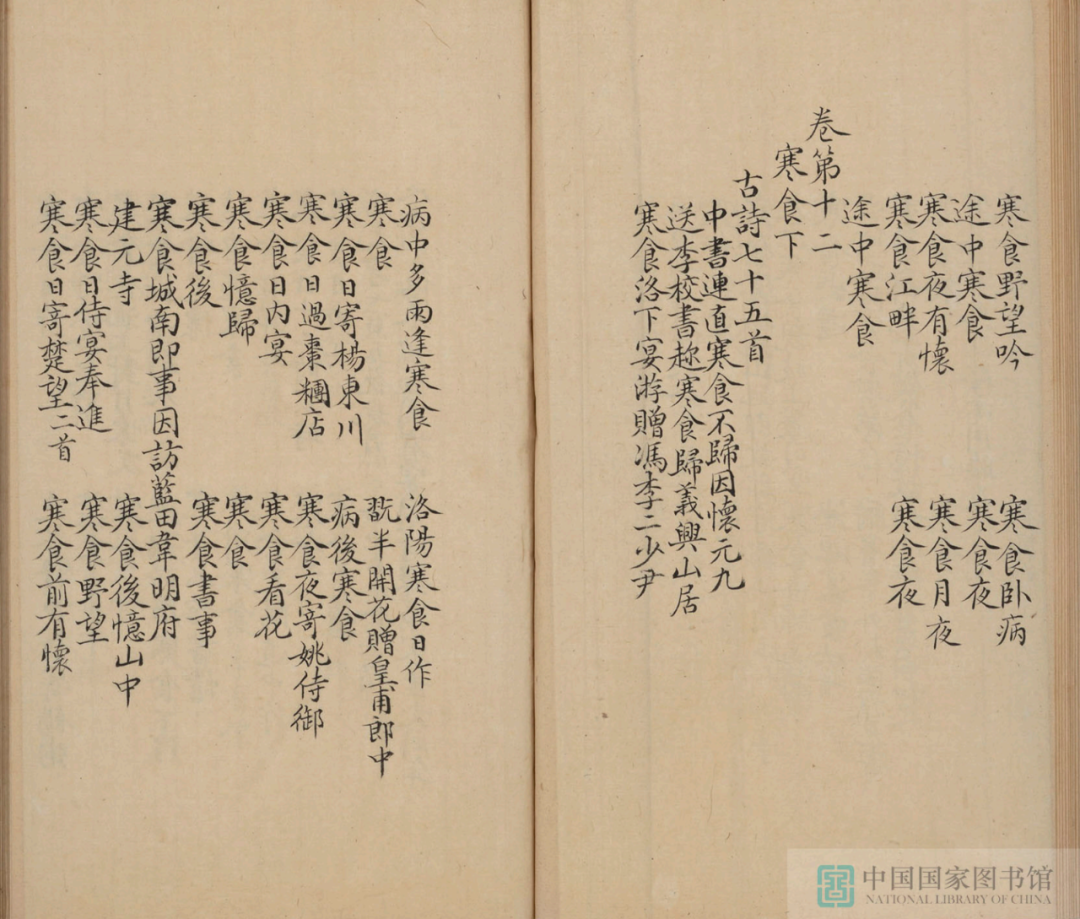 寒食野望吟　寒食卧病
途中寒食　寒食夜
寒食夜有懷　寒食月夜
寒食江畔　寒食夜
途中寒食
卷第十二
寒食下
古詩七十五首
中書連直寒食不歸因懷元九
送李校書趂寒食歸義興山居
寒食洛下宴游贈馮李二少尹
病中多雨逢寒食　洛陽寒食日作
寒食　翫半開花贈皇甫郎中
寒食日寄楊東川　病後寒食
寒食日過棗糰店　寒食夜寄姚侍御
寒食日内宴　寒食看花
寒食憶歸　寒食
寒食後　寒食書事
寒食城南即事因訪藍田韋明府
建元寺　寒食後憶山中
寒食日侍宴奉進　寒食野望
寒食日寄楚望二首　寒食前有懷
中国国家图书馆
NATIONAL LIBRARY OF CHINA